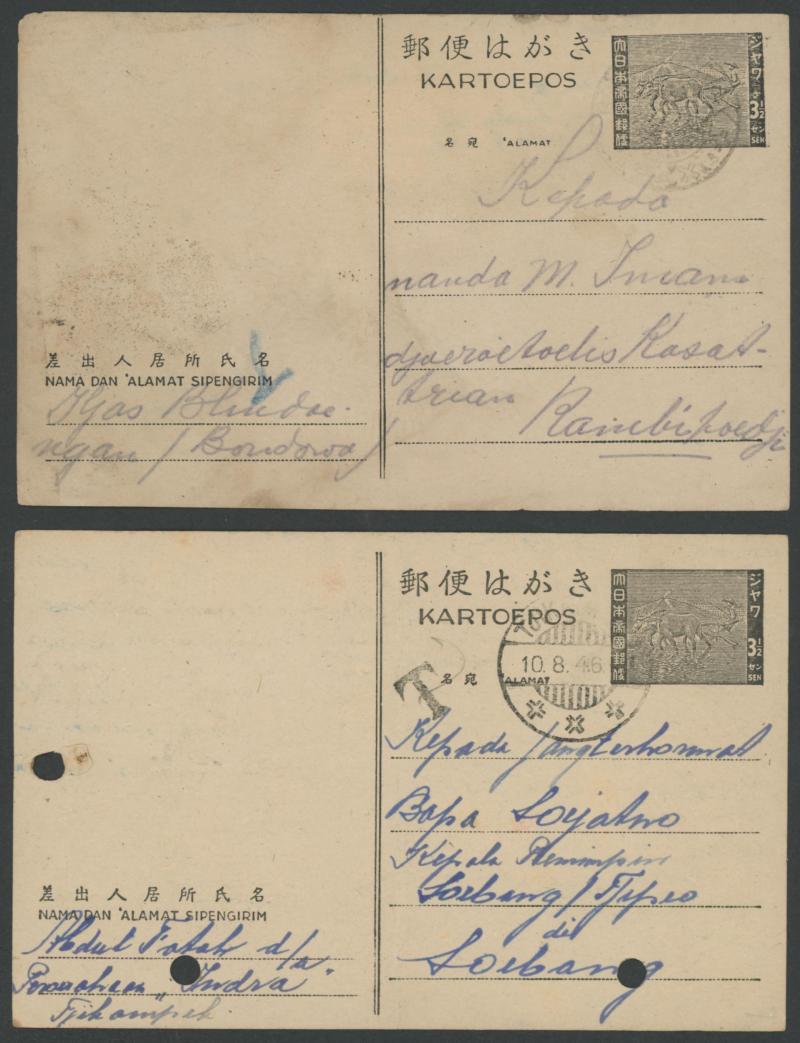 郵便はがき
KARTOEPOS
大日本帝國郵便
ジャワ
3½
セン
SEN
名宛 'ALAMAT
Kepada
nanda M. Imam
djoeroetoelis Kasat-
trian
Rambipoedji
差出人居所氏名
NAMA DAN 'ALAMAT SIPENGIRIM
Iljas Blindoe-
ngan / Bondowo/
郵便はがき
KARTOEPOS
大日本帝國郵便
ジャワ
3½
セン
SEN
10.8.46
T
名宛 'ALAMAT
Kepada jang terhormat
Bapa Soejatno
Kepala Pemimpin
Soebang /
di
Soebang
差出人居所氏名
NAMA DAN 'ALAMAT SIPENGIRIM
Abdul Fatah d/a
"Indra"
Tjikampek